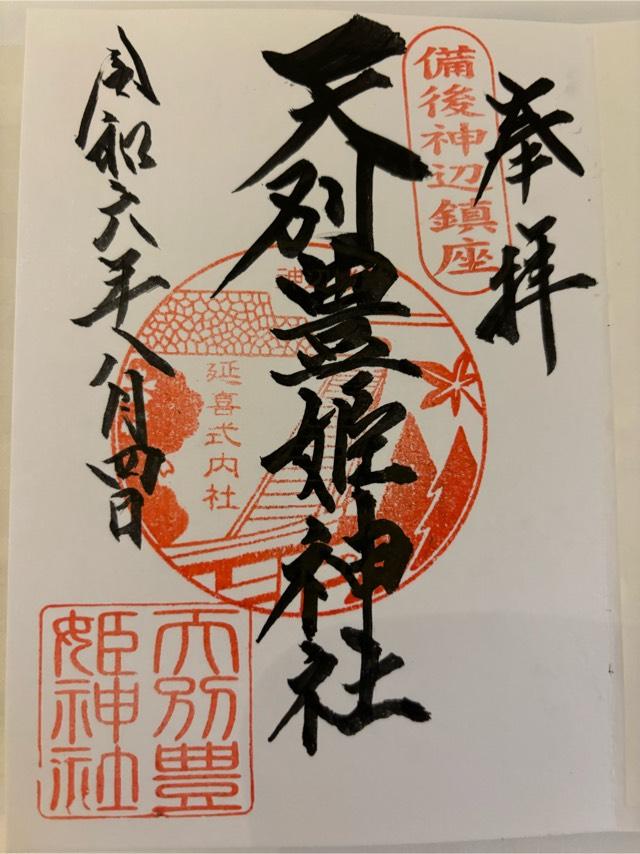 奉拝
備後神辺鎮座
天別豊姫神社
延喜式内社
令和六年八月四日
天別豊
姫神社